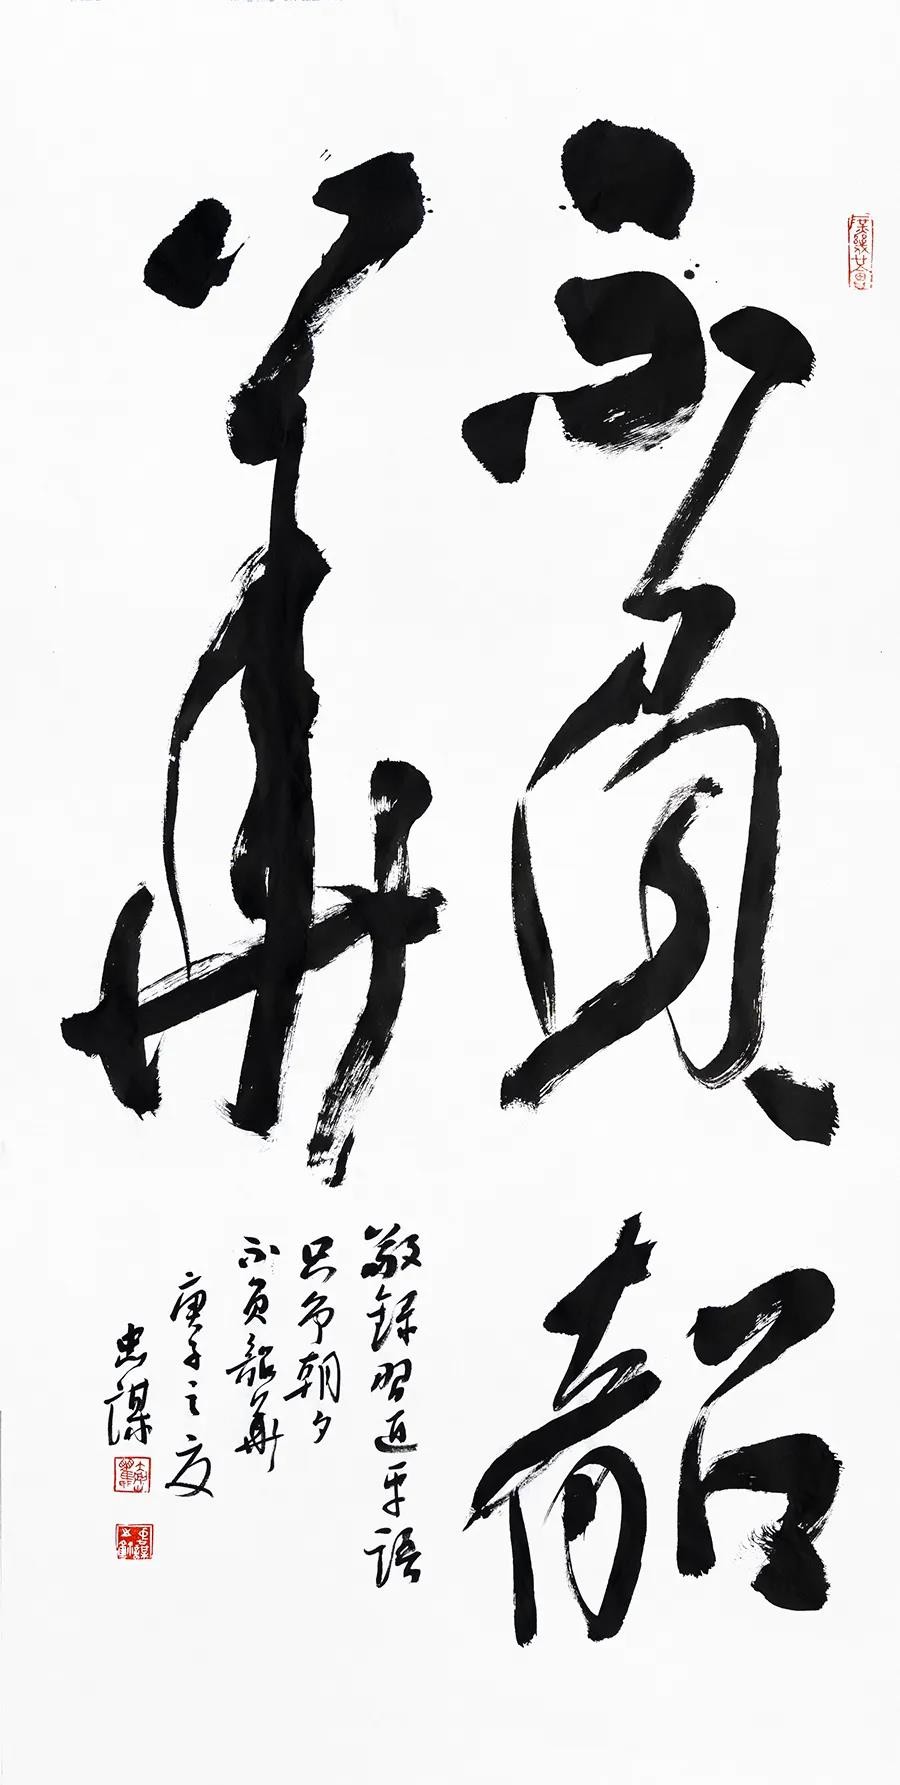 不負韶
華
敬錄習近平語
只争朝夕
不負韶華
庚子之夏
忠謀